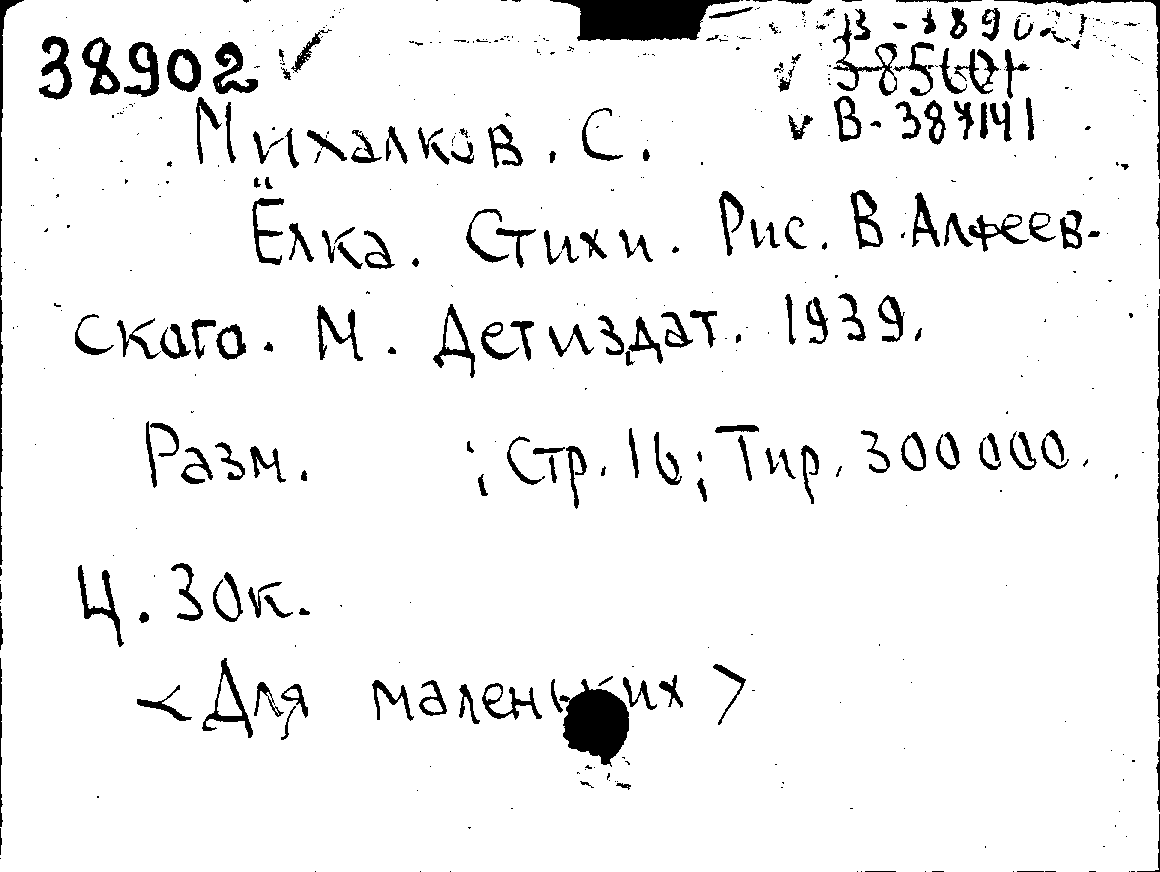 38902 ✓
В-38902
✓ 385601
Михалков. С. ✓ В-387141
Ёлка. Стихи. Рис. В.Алфеев-
ского. М. Детиздат. 1939.
Разм. ; Стр. 16; Тир. 300000.
Ц. 30к.
<Для маленьких>